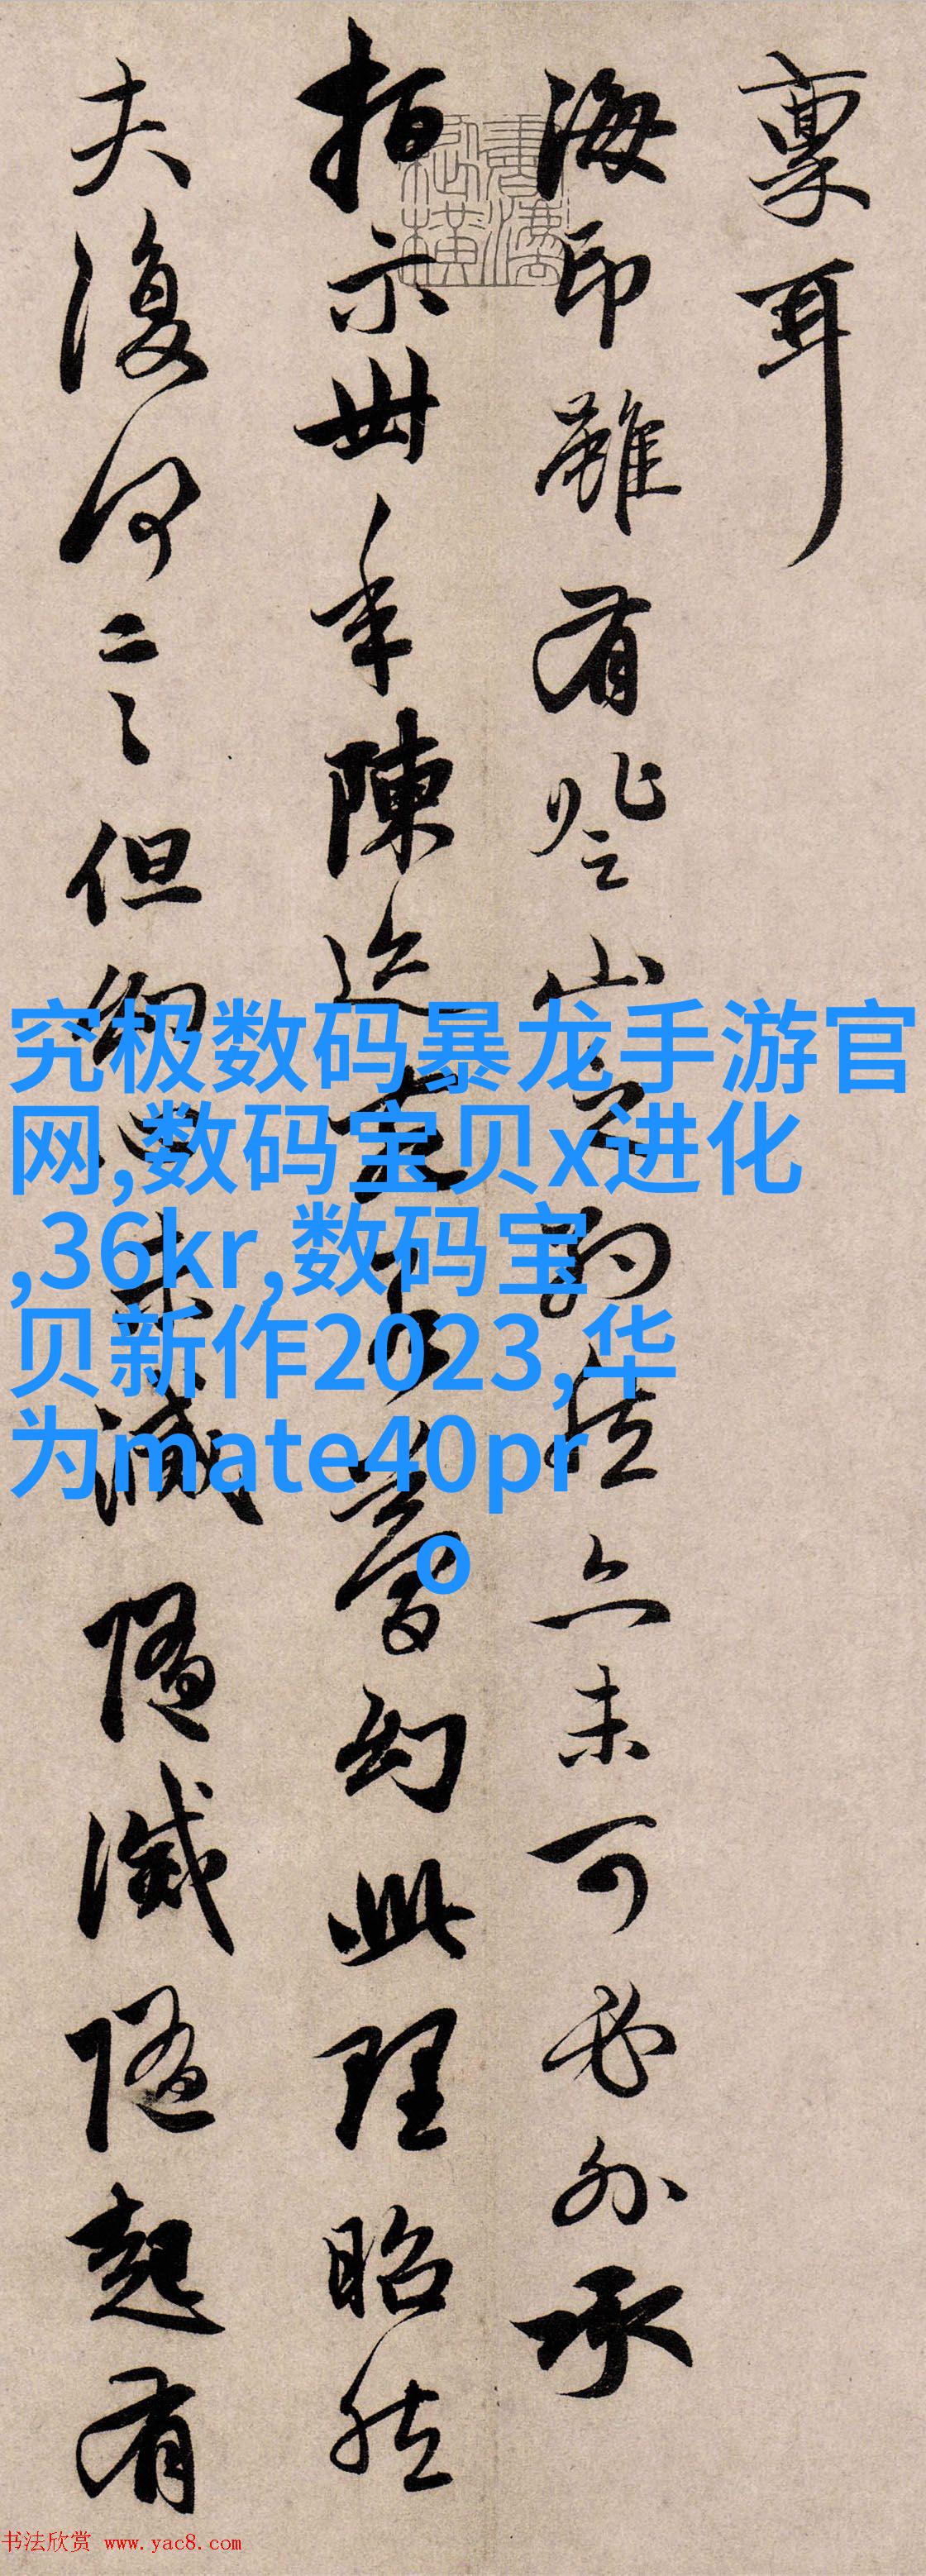 稟耳
海印雖有登山之約然亦未可必外承
指示卅年陳迹
幻此理昭然
夫復何言
但
未滅隨滅隨起有
究极数码暴龙手游官
网,数码宝贝x进化
,36kr,数码宝
贝新作2023,华
为mate40pr
o
书法欣赏 www.yac8.com